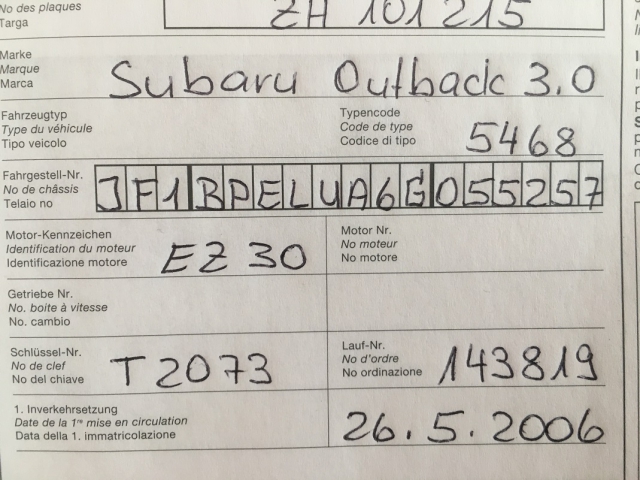 No des plaques
Targa
ZH 101 215
Marke
Marque
Marca
Subaru Outback 3.0
Fahrzeugtyp
Type du véhicule
Tipo veicolo
Typencode
Code de type
Codice di tipo
5468
Fahrgestell-Nr.
No de châssis
Telaio no
JF1BPELUA6G055257
Motor-Kennzeichen
Identification du moteur
Identificazione motore
EZ 30
Motor Nr.
No moteur
No motore
Getriebe Nr.
No. boite à vitesse
No. cambio
Schlüssel-Nr.
No de clef
No del chiave
T 2073
Lauf-Nr.
No d'ordre
No ordinazione
143819
1. Inverkehrsetzung
Date de la 1re mise en circulation
Data della 1. immatricolazione
26.5.2006